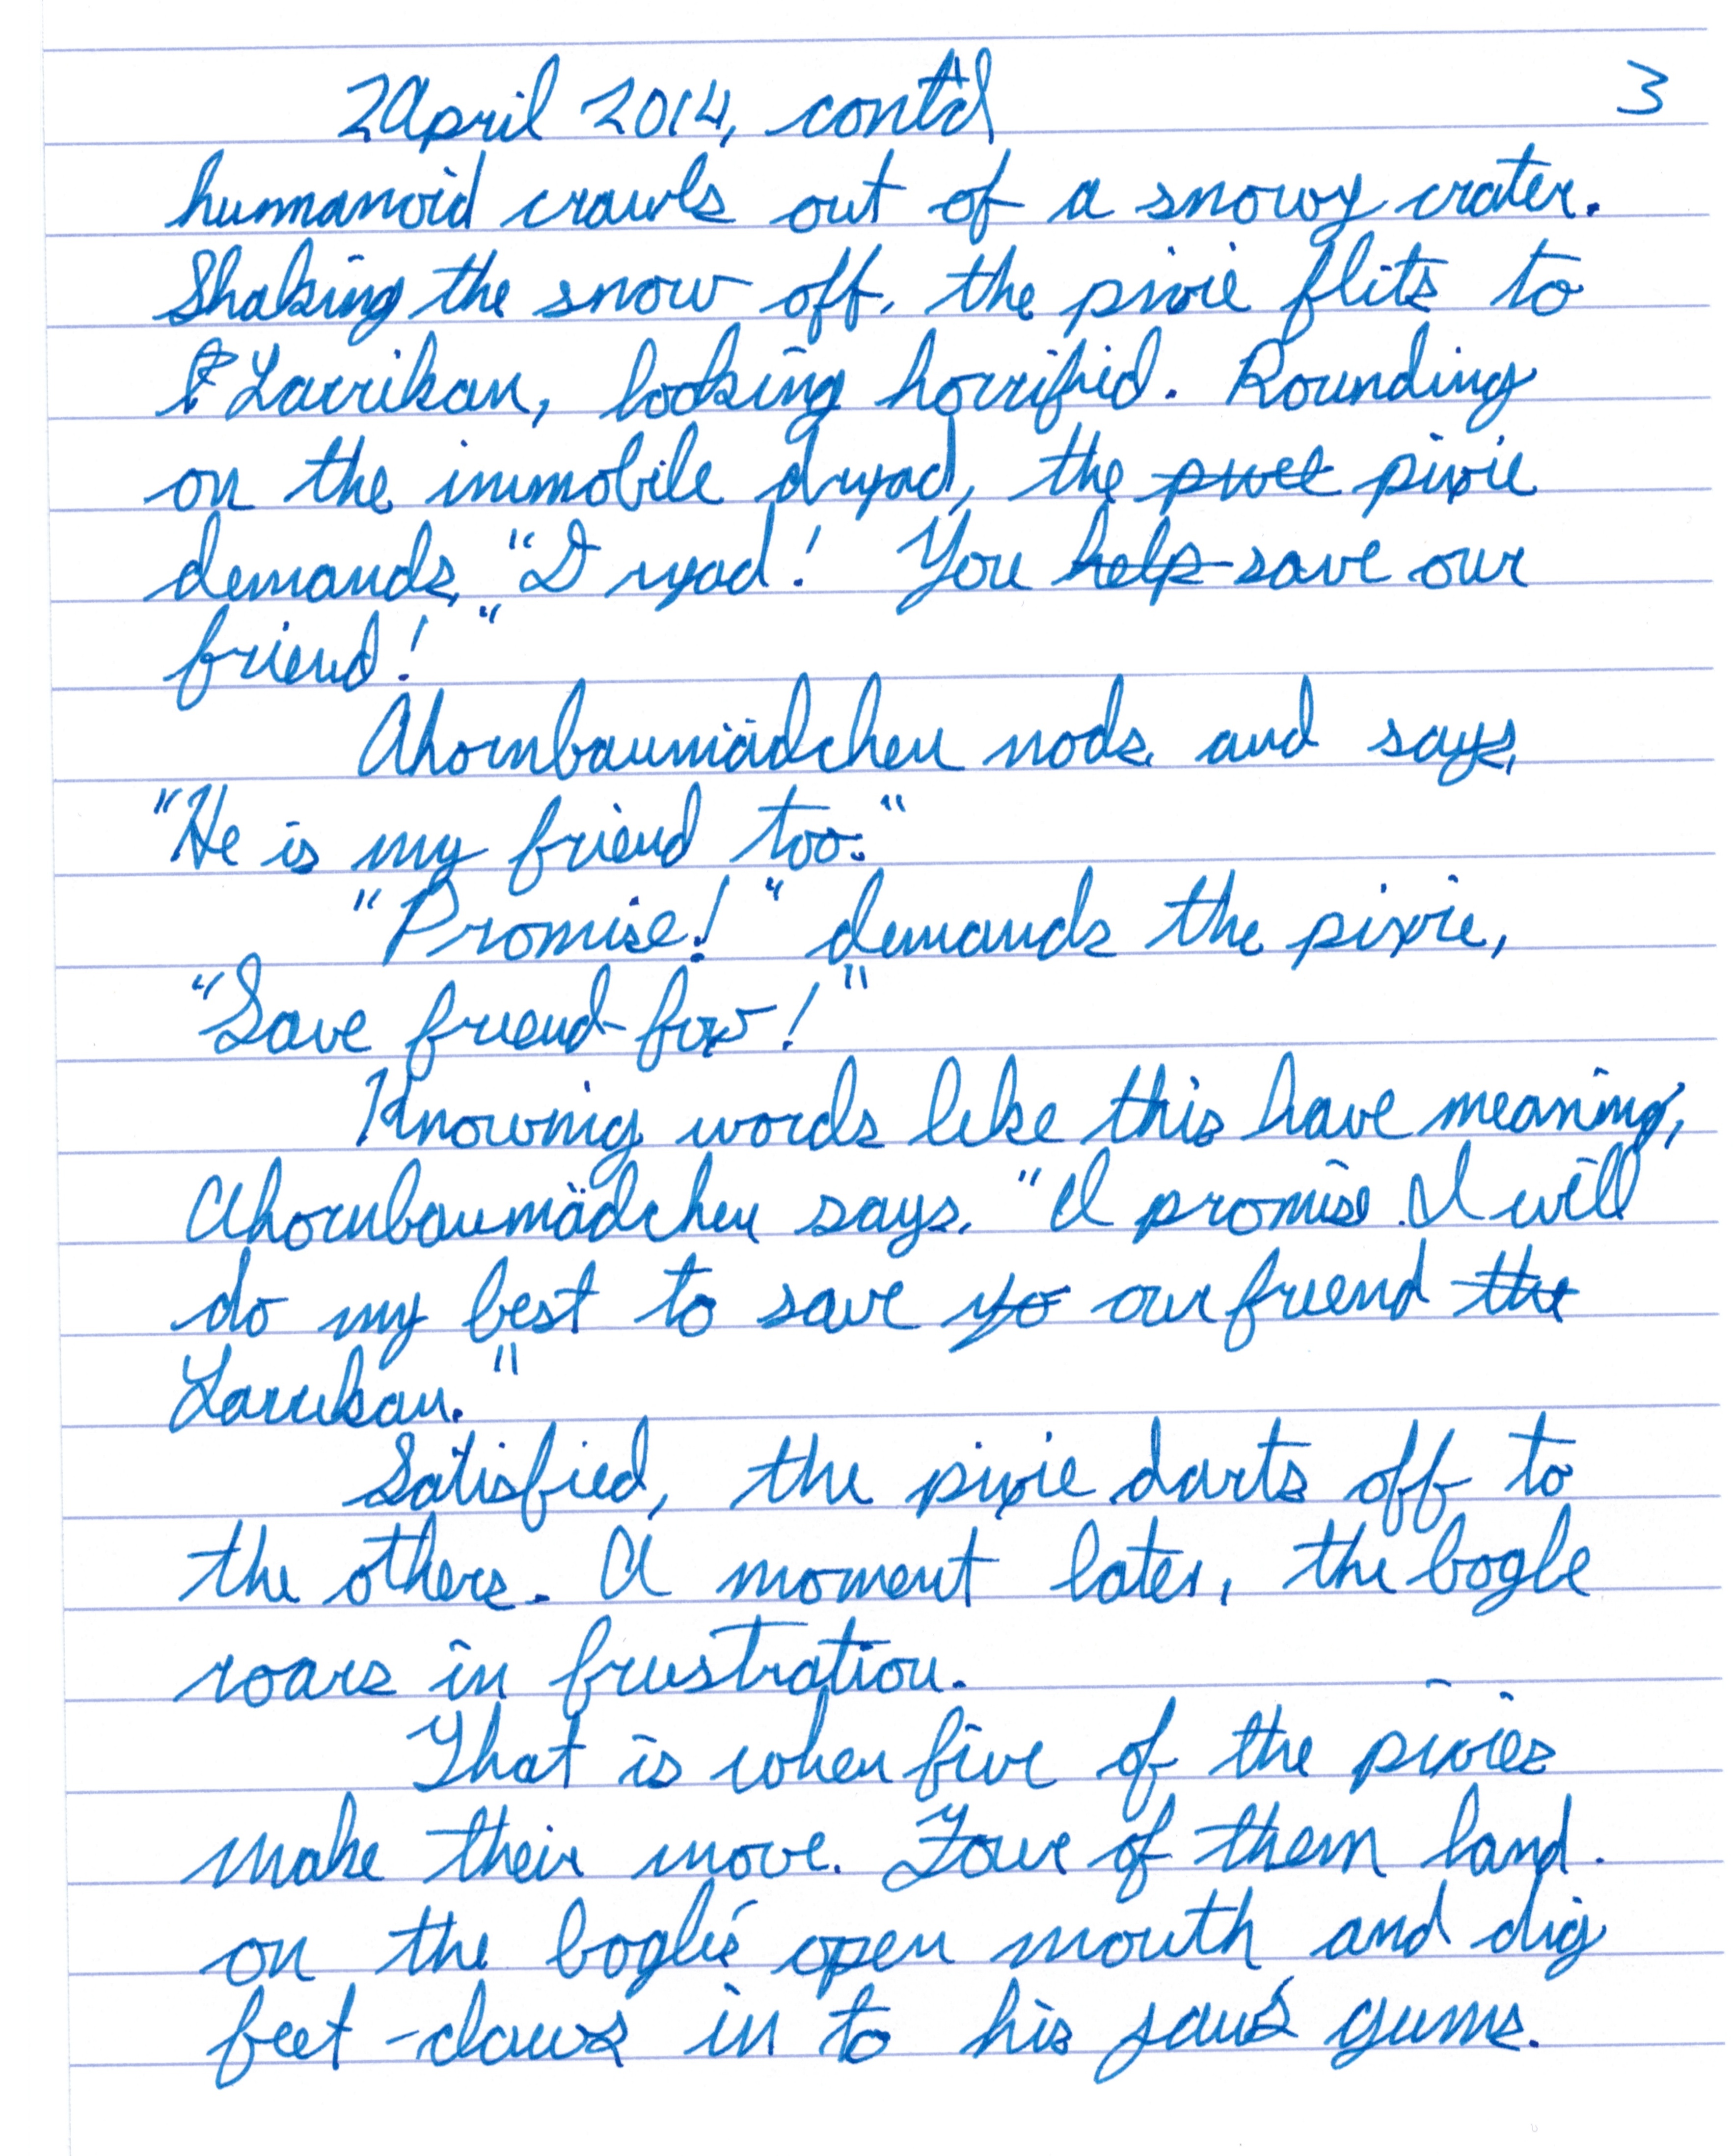 2 April 2014, cont'd 3
humanoid crawls out of a snowy crater.
Shaking the snow off, the pixie flits to
Larrikan, looking horrified. Rounding
on the immobile dryad, the pixie
demands, "Dryad! You help save our
friend!"
Ahornbaumädchen nods and says,
"He is my friend too."
"Promise!" demands the pixie,
"Save friend-fox!"
Knowing words like this have meaning,
Ahornbaumädchen says, "I promise I will
do my best to save yo our friend the
Larrikan."
Satisfied, the pixie darts off to
the others. A moment later, the bogle
roars in frustration.
That is when five of the pixies
make their move. Four of them land
on the bogle's open mouth and dig
feet-claws in to his jaw's gums.